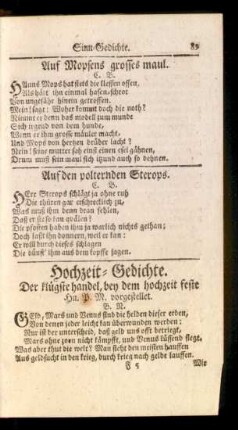 Sinn-Gedichte. 89
Auf Mopsens grosses maul.
C. B.
Hanns Mops hat stets die kleffen offen,
Als hätt ihn einmal hasen-schrot
Von ungefähr hinein getroffen.
Mein! sagt: Woher kommt doch die noth?
Nimmt er denn das modell zum munde
Sich irgend von dem hunde,
Wenn er ihm grosse mäuler macht,
Und Mops von hertzen drüber lacht?
Nein! seine mutter sah einst einen esel gähnen,
Drum muß sein maul sich itzund auch so dehnen.
Auf den polternden Sterops.
C. B.
Herr Sterops schlägt ja ohne ruh
Die thüren gar erschrecklich zu,
Was muß ihm denn dran fehlen,
Daß er sie so kan quälen?
Die pfosten haben ihm ja warlich nichts gethan;
Doch last ihn donnern, weil er kan:
Er will durch dieses schlagen
Die dünst' ihm aus dem kopffe jagen.
Hochzeit-Gedichte.
Der klügste handel, bey dem hochzeit feste
Hn. P. M. vorgestellet.
B. N.
Geld, Mars und Venus sind die helden dieser erden,
Von denen jeder leicht kan überwunden werden:
Nur ist der unterscheid, daß geld uns offt betriegt,
Mars ohne zorn nicht kämpfft, und Venus küssend siegt.
Was aber thut die welt? Man sieht den meisten hauffen
Aus geldsucht in den krieg, durch krieg nach gelde lauffen.
F 5 Wir